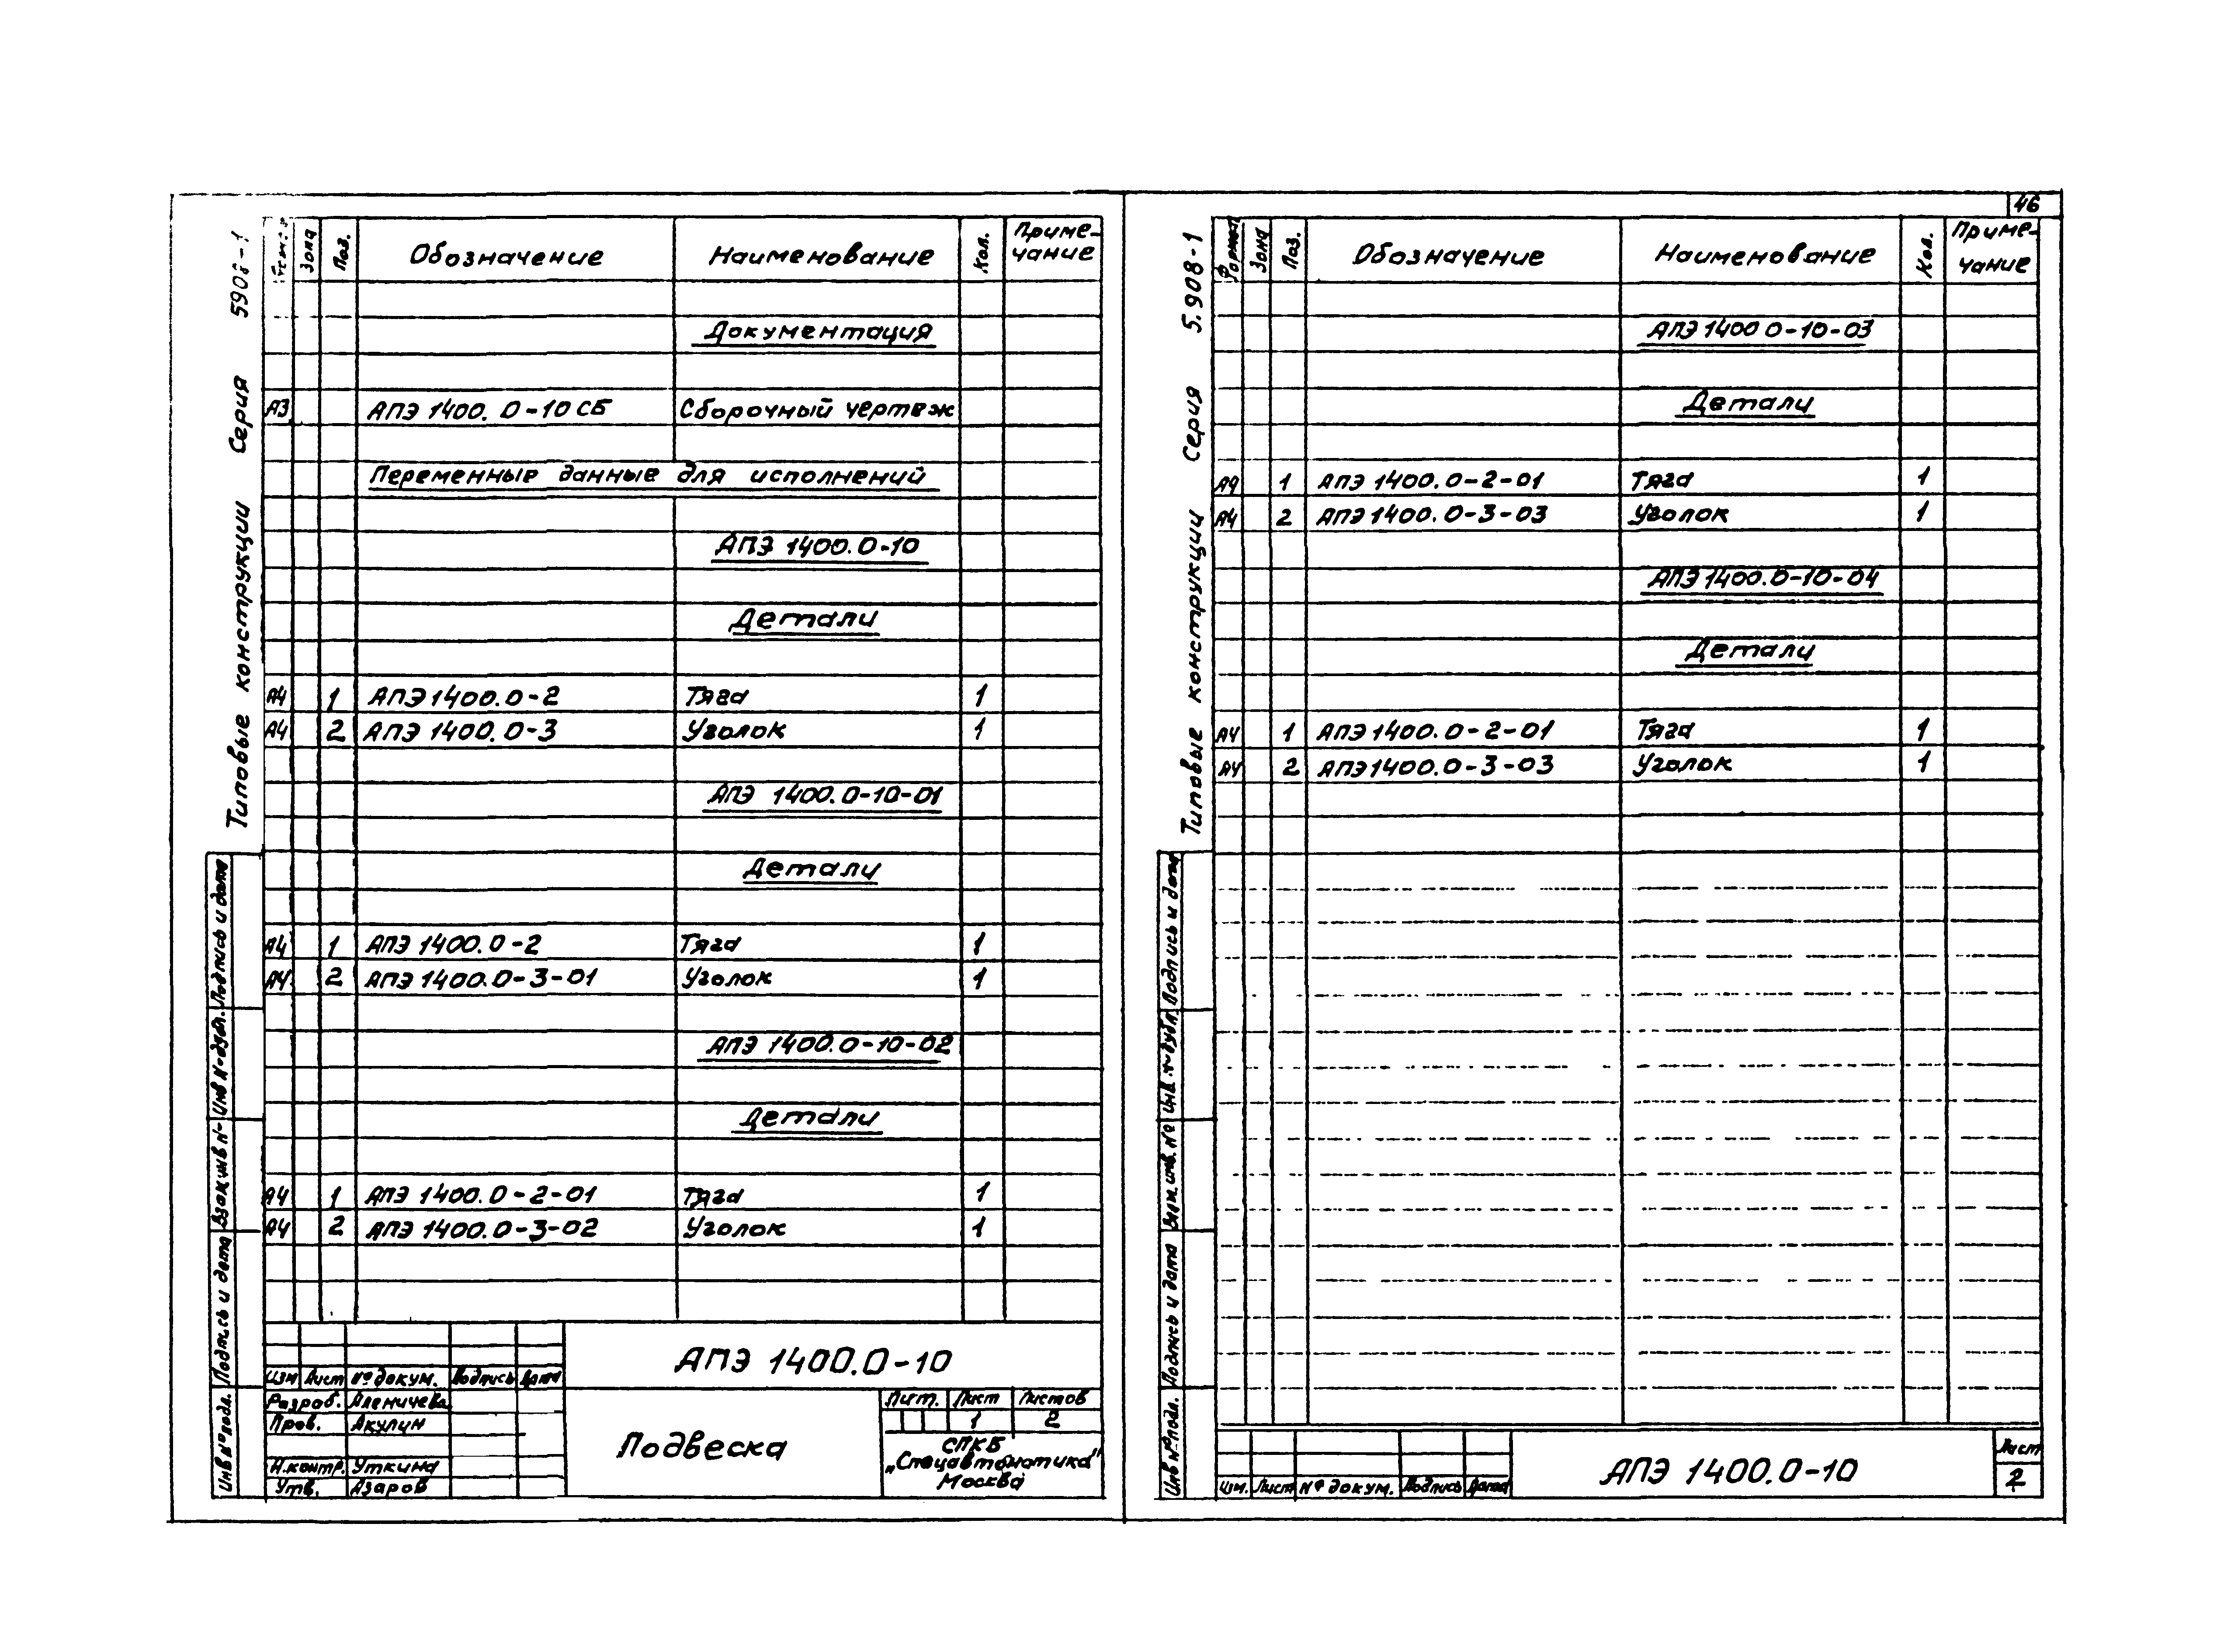 Типовые конструкции Серия 5.908-1
Зона Поз. Обозначение Наименование Кол. Приме-
чание
Документация
А3 АПЭ 1400.0-10 СБ Сборочный чертеж
Переменные данные для исполнений
АПЭ 1400.0-10
Детали
А4 1 АПЭ 1400.0-2 Тяга 1
А4 2 АПЭ 1400.0-3 Уголок 1
АПЭ 1400.0-10-01
Детали
А4 1 АПЭ 1400.0-2 Тяга 1
А4 2 АПЭ 1400.0-3-01 Уголок 1
АПЭ 1400.0-10-02
Детали
А4 1 АПЭ 1400.0-2-01 Тяга 1
А4 2 АПЭ 1400.0-3-02 Уголок 1
Инв № подл. Подпись и дата Взам инв № Инв № дубл. Подпись и дата
Изм Лист № докум. Подпись Дата
Разраб. Аленичева
Пров. Акулин
Н.контр. Уткина
Утв. Азаров
АПЭ 1400.0-10
Подвеска
Лит. Лист Листов
1 2
СПКБ
„Спецавтоматика"
Москва
46
Типовые конструкции Серия 5.908-1
Формат Зона Поз. Обозначение Наименование Кол. Приме-
чание
АПЭ 1400 0-10-03
Детали
А4 1 АПЭ 1400.0-2-01 Тяга 1
А4 2 АПЭ 1400.0-3-03 Уголок 1
АПЭ 1400.0-10-04
Детали
А4 1 АПЭ 1400.0-2-01 Тяга 1
А4 2 АПЭ 1400.0-3-03 Уголок 1
Инв № подл. Подпись и дата Взам. инв. № Инв. № дубл. Подпись и дата
Изм. Лист № докум. Подпись Дата
АПЭ 1400.0-10
Лист
2